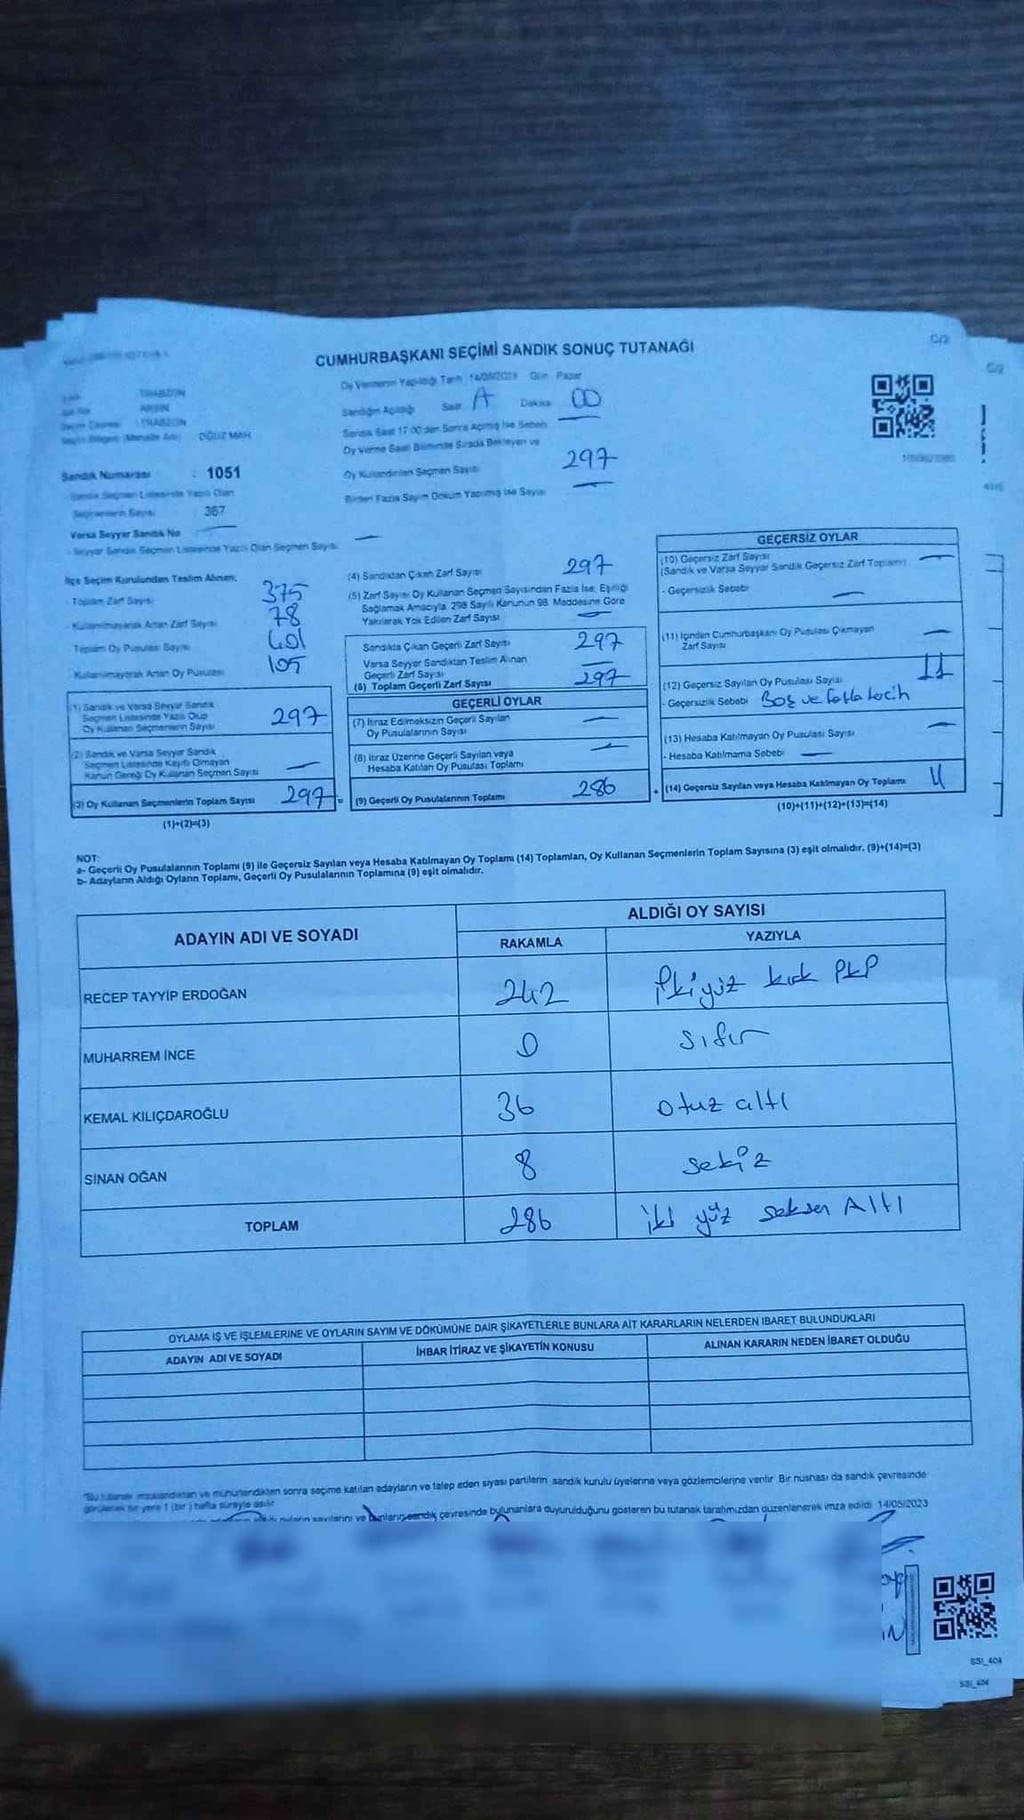 C/2
C/2
CUMHURBAŞKANI SEÇİMİ SANDIK SONUÇ TUTANAĞI
Oy Vermenin Yapıldığı Tarih 14/05/2023 Gün Pazar
TRABZON
ARSİN
TRABZON
OĞUZ MAH
Sandığın Açıldığı Saat A Dakika 00
Sandık Saat 17:00'den Sonra Açılmış İse Sebebi
Oy Verme Saati Bitiminde Sırada Bekleyen ve
Oy Kullandırılan Seçmen Sayısı 297
Birden Fazla Sayım Döküm Yapılmış İse Sayısı
Sandık Numarası : 1051
Sandık Seçmen Listesinde Yazılı Olan
Seçmenlerin Sayısı 367
Varsa Seyyar Sandık No
- Seyyar Sandık Seçmen Listesinde Yazılı Olan Seçmen Sayısı
İlçe Seçim Kurulundan Teslim Alınan;
- Toplam Zarf Sayısı 375
Kullanılmayarak Artan Zarf Sayısı 78
Toplam Oy Pusulası Sayısı 401
Kullanılmayarak Artan Oy Pusulası 105
(1) Sandık ve Varsa Seyyar Sandık
Seçmen Listesinde Yazılı Olup
Oy Kullanan Seçmenlerin Sayısı 297
(2) Sandık ve Varsa Seyyar Sandık
Seçmen Listesinde Kayıtlı Olmayan
Kanun Gereği Oy Kullanan Seçmen Sayısı —
(3) Oy Kullanan Seçmenlerin Toplam Sayısı 297 =
(1)+(2)=(3)
(4) Sandıktan Çıkan Zarf Sayısı 297
(5) Zarf Sayısı Oy Kullanan Seçmen Sayısından Fazla İse, Eşitliği
Sağlamak Amacıyla, 298 Sayılı Kanunun 98. Maddesine Göre
Yakılarak Yok Edilen Zarf Sayısı —
Sandıkta Çıkan Geçerli Zarf Sayısı 297
Varsa Seyyar Sandıktan Teslim Alınan
Geçerli Zarf Sayısı —
(6) Toplam Geçerli Zarf Sayısı 297
GEÇERLİ OYLAR
(7) İtiraz Edilmeksizin Geçerli Sayılan
Oy Pusulalarının Sayısı —
(8) İtiraz Üzerine Geçerli Sayılan veya
Hesaba Katılan Oy Pusulası Toplamı —
(9) Geçerli Oy Pusulalarının Toplamı 286 +
GEÇERSİZ OYLAR
(10) Geçersiz Zarf Sayısı
(Sandık ve Varsa Seyyar Sandık Geçersiz Zarf Toplamı) —
- Geçersizlik Sebebi —
(11) İçinden Cumhurbaşkanı Oy Pusulası Çıkmayan
Zarf Sayısı —
(12) Geçersiz Sayılan Oy Pusulası Sayısı 11
- Geçersizlik Sebebi Boş ve fazla tercih
(13) Hesaba Katılmayan Oy Pusulası Sayısı —
- Hesaba Katılmama Sebebi —
(14) Geçersiz Sayılan veya Hesaba Katılmayan Oy Toplamı 11
(10)+(11)+(12)+(13)=(14)
NOT:
a- Geçerli Oy Pusulalarının Toplamı (9) ile Geçersiz Sayılan veya Hesaba Katılmayan Oy Toplamı (14) Toplamları, Oy Kullanan Seçmenlerin Toplam Sayısına (3) eşit olmalıdır. (9)+(14)=(3)
b- Adayların Aldığı Oyların Toplamı, Geçerli Oy Pusulalarının Toplamına (9) eşit olmalıdır.
ADAYIN ADI VE SOYADI
ALDIĞI OY SAYISI
RAKAMLA YAZIYLA
RECEP TAYYİP ERDOĞAN 242 İkiyüz kırk iki
MUHARREM İNCE 0 sıfır
KEMAL KILIÇDAROĞLU 36 otuz altı
SİNAN OĞAN 8 sekiz
TOPLAM 286 iki yüz seksen Altı
OYLAMA İŞ VE İŞLEMLERİNE VE OYLARIN SAYIM VE DÖKÜMÜNE DAİR ŞİKAYETLERLE BUNLARA AİT KARARLARIN NELERDEN İBARET BULUNDUKLARI
ADAYIN ADI VE SOYADI İHBAR İTİRAZ VE ŞİKAYETİN KONUSU ALINAN KARARIN NEDEN İBARET OLDUĞU
"Bu tutanak imzalandıktan ve mühürlendikten sonra seçime katılan adayların ve talep eden siyasi partilerin sandık kurulu üyelerine veya gözlemcilerine verilir. Bir nüshası da sandık çevresinde
görülecek bir yere 1 (bir) hafta süreyle asılır.
sayılarını ve bunların sandık çevresinde bulunanlara duyurulduğunu gösteren bu tutanak tarafımızdan düzenlenerek imza edildi. 14/05/2023
SSI_404
SSI_404